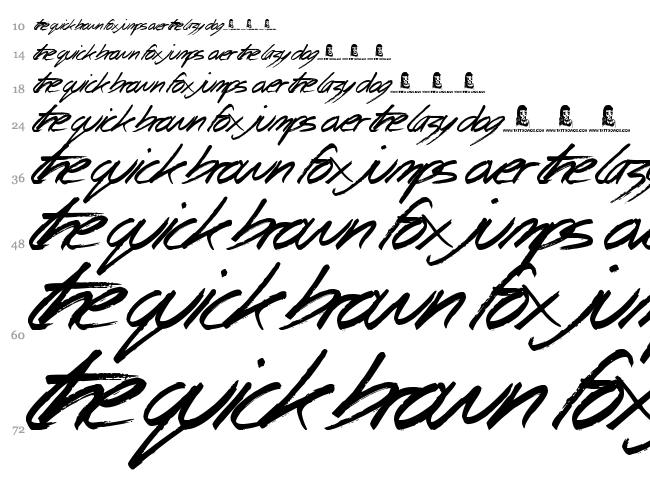 10 the quick brown fox jumps over the lazy dog
14 the quick brown fox jumps over the lazy dog
18 the quick brown fox jumps over the lazy dog
24 the quick brown fox jumps over the lazy dog WWW.TATTOOWOO.COM WWW.TATTOOWOO.COM WWW.TATTOOWOO.COM
36 the quick brown fox jumps over the lazy
48 the quick brown fox jumps ov
60 the quick brown fox jum
72 the quick brown fox